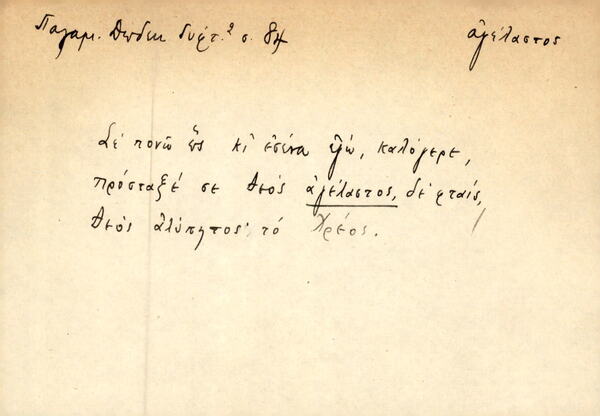 Παλαμ. Δωδεκ Γύφτ.² σ. 84
ἀγέλαστος
Σὲ πονῶ ὡς κι' ἐσένα ἐγώ, καλόγερε,
πρόσταξέ σε θεὸς ἀγέλαστος, δὲ φταίς,
θεὸς ἀλύπητος· τὸ Χρέος.